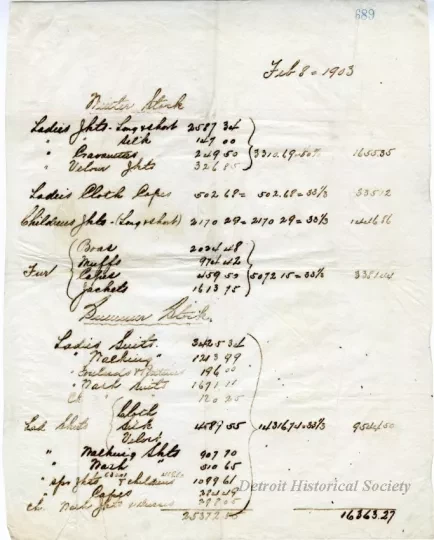 689
Feb 8 = 1903
Winter Stock
Ladies Jkts - Long & short 2587 34
" " Silk 147 00
" Cravanettes 249 50 3310.69 - 50% 1655 35
" Velour Jkts 326 85
Ladies Cloth Capes 502.68 = 502.68 = 33⅓ 335 12
Childrens Jkts - (Long & short) 2170 29 = 2170 29 = 33⅓ 1446 86
Boas 2024 48
Muffs 974 42
Fur Capes 459 50 5072 15 = 33⅓ 3381 44
Jackets 1613 75
Summer Stock
Ladies Suits 3425 34
" Walking " 1243 99
" 196 00
" Wash Suits 1671
120 25
Cloth
Lad. Skts Silk 4587 55 14316 74 = 33⅓ 9544 50
Velour
" Walking Skts 907 70
" Wash " 510 65
" Spr Jkts & childrens 1089 61
" Capes 284 49
Ch. Wash Jkts
25372.55 16363.27
Detroit Historical Society